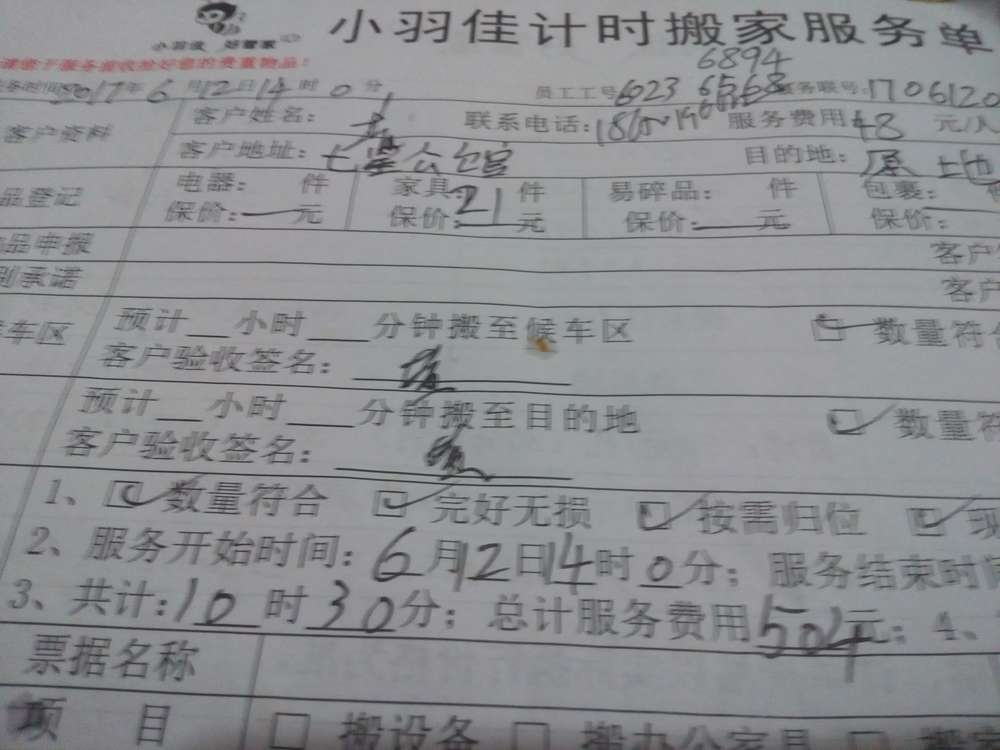 小羽佳 好管家
小羽佳计时搬家服务单
6894
务时间2017年6月12日14时0分 员工工号6023 6568 务联号:1706120
客户资料 客户姓名: 联系电话: 服务费用48元/人
客户地址: 七星公馆 目的地: 原地
品登记 电器: 件 家具: 21件 易碎品: 件 包裹:
保价:一元 保价: 元 保价:一元 保价:
品申报 客户
别承诺 客户
车区 预计__小时___分钟搬至候车区 数量符合
客户验收签名:
预计__小时___分钟搬至目的地 数量符
客户验收签名:
1、数量符合 完好无损 按需归位 现
2、服务开始时间:6月12日14时0分; 服务结束时间
3、共计:10时30分; 总计服务费用504元; 4、
票据名称
项目 搬设备 搬办公家具 搬家